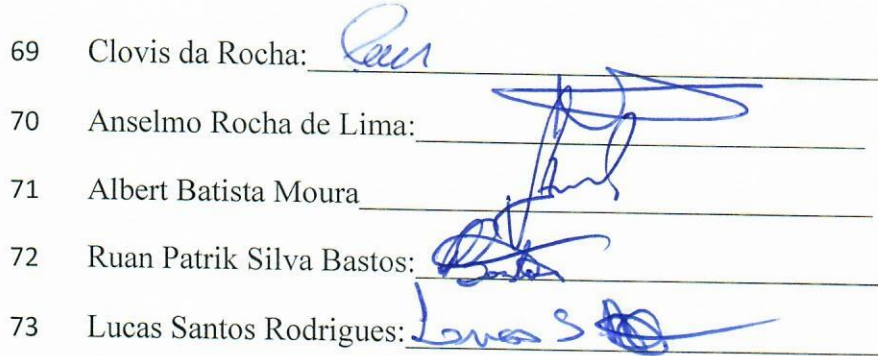 69 Clovis da Rocha:
70 Anselmo Rocha de Lima:
71 Albert Batista Moura
72 Ruan Patrik Silva Bastos:
73 Lucas Santos Rodrigues: Lucas S